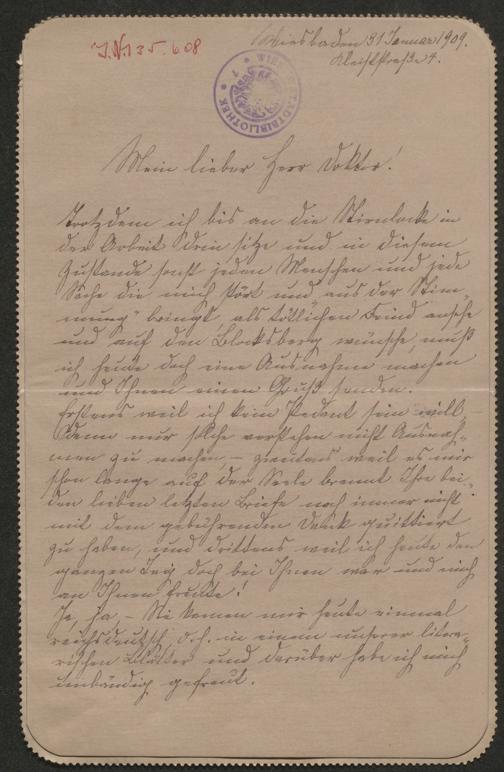 J.N. 135.608
Wiesbaden 31 Januar 1909.
Kleiststraße 4.
WIENER STADTBIBLIOTHEK
Mein lieber Herr Doktor!
Trotzdem ich bis an die Stirnlocke in
der Arbeit drin sitze und in diesem
Zustande sonst jeden Menschen und jede
Sache die mich stört und aus der „Stim„
mung" bringt, als tötlichen Feind ansehe
und auf den Blocksberg wünsche, muß
ich heute doch eine Ausnahme machen
und Ihnen einen Gruß senden.
Erstens weil ich kein Pedant sein will –
denn nur solche verstehen nicht Ausnah„
men zu machen, – zweitens weil es mir
schon lange auf der Seele brennt Ihre bei„
den lieben letzten Briefe noch immer nicht
mit dem gebührenden Dank quittiert
zu haben, und drittens weil ich heute den
ganzen Tag doch bei Ihnen war und mich
an Ihnen freute!
Ja, ja, – Sie kamen mir heute einmal
reichsdeutsch, d. h. in einem unserer litera„
rischen Blätter und darüber habe ich mich
unbändig gefreut.